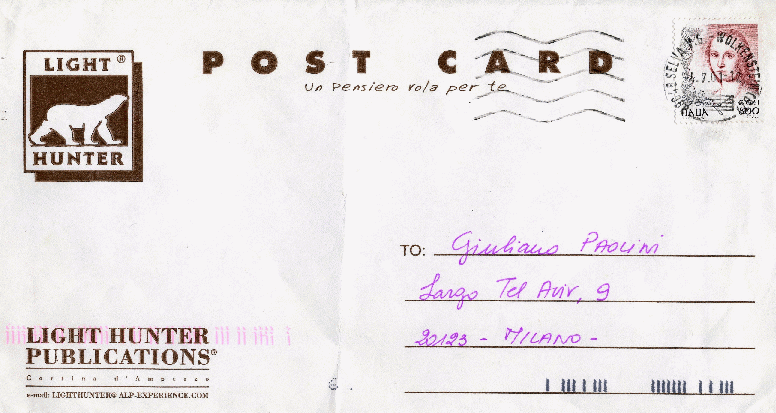 LIGHT®
HUNTER
POST CARD
un pensiero vola per te
SELVA WOLKENSTEIN
ITALIA
TO: Giuliano PAOLINI
Largo Tel Aviv, 9
20123 - MILANO -
LIGHT HUNTER
PUBLICATIONS®
Cortina d'Ampezzo
e-mail: LIGHTHUNTER@ALP-EXPERIENCE.COM